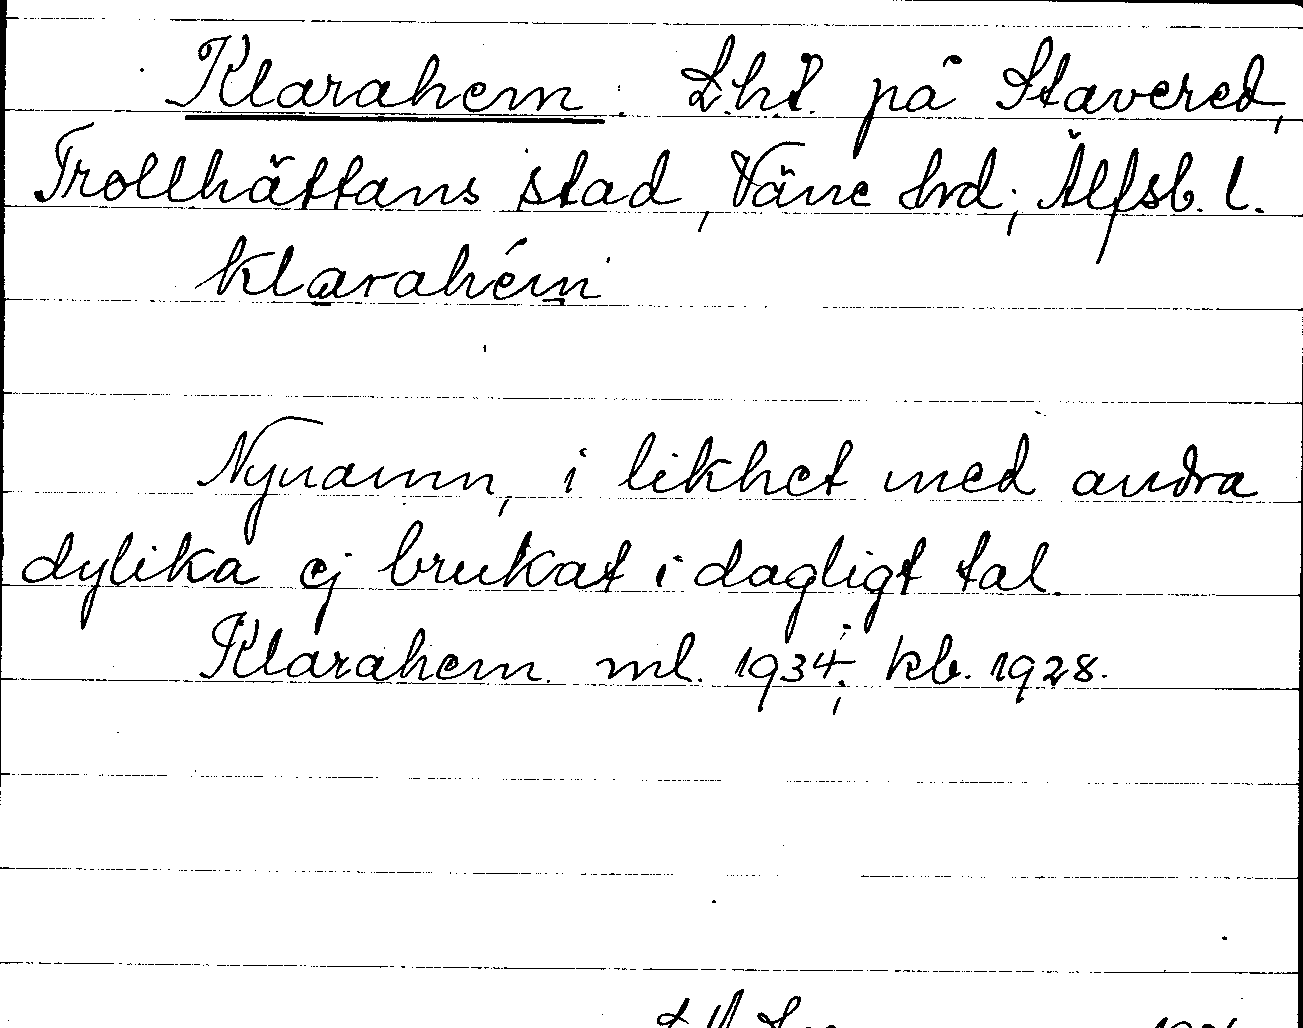 Klarahem. Lht. på Stavered,
Trollhättans stad, Väne hd; Älfsb. l.
klarahém
Nynamn, i likhet med andra
dylika ej brukat i dagligt tal.
Klarahem ml. 1934; kb. 1928.